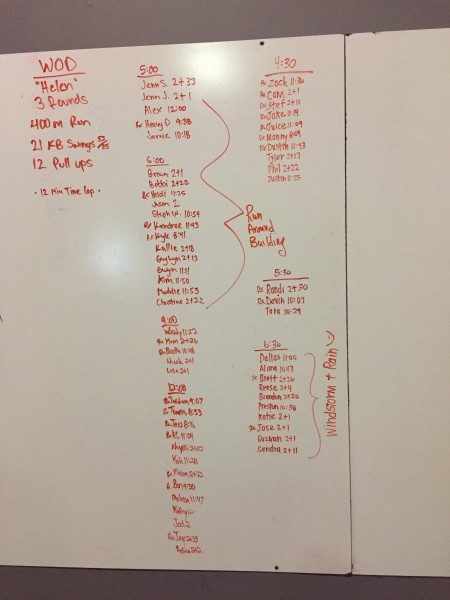 WOD
"Helen"
3 Rounds
400 m Run
21 KB Swings
12 Pull ups
- 12 Min Time Cap -
5:00
Jenn S. 2+33
Jenn J. 2+1
Alex 12:00
Rx Henry D 9:38
Jamie 10:18
6:00
Brown 2+1
Bobbi 2+22
Rx Heidi 11:25
Jason 2
Steph W. 10:59
Rx Kendrae 11:43
Rx Kyle 8:41
Kallie 2+8
2+13
Gwyn 11:11
Kim 11:50
Maddie 11:53
Christine 2+22
Run
Around
Building
9:00
Woody 11:22
Rx Kim 2+26
Rx Beth
Nicole 2+1
Lisa 2+1
12:00
Rx Jordan 9:07
Rx Travis 8:33
Rx Joes 8:16
Rx 11:04
2+22
Kyle 11:28
Rx 2+22
Rx Ben 9:30
Melissa 11:47
Kathy
Jodi 2
Rx Jay 2+33
4:30
Rx Zach 11:36
Rx Cam 2+1
Rx Stef 2+11
Rx Jake 11:19
Rx Joice 11:09
Rx Manny 8:09
Rx Dustin 11:43
Tyler 2+17
Phil 2+22
Justin 11:55
5:30
Rx Randi 2+30
Rx Devin 10:07
Tara 10:29
6:30
Dallas 11:00
Alana 10:47
Rx Brett 2+26
Reese 2+4
Brandon 2+20
Preston 10:38
Katie 2+1
Rx Jose 2+1
2+1
Sondra 2+11
Windstorm + Rain